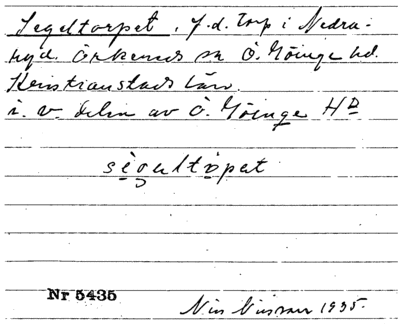 Segeltorpet, f.d. torp i Nedra-
ryd. Örkeneds sn Ö. Göinge hd.
Kristianstads län.
i. v. delen av Ö. Göinge HD
sègultòpat
Nr 5435
Nils Nilsson 1935.